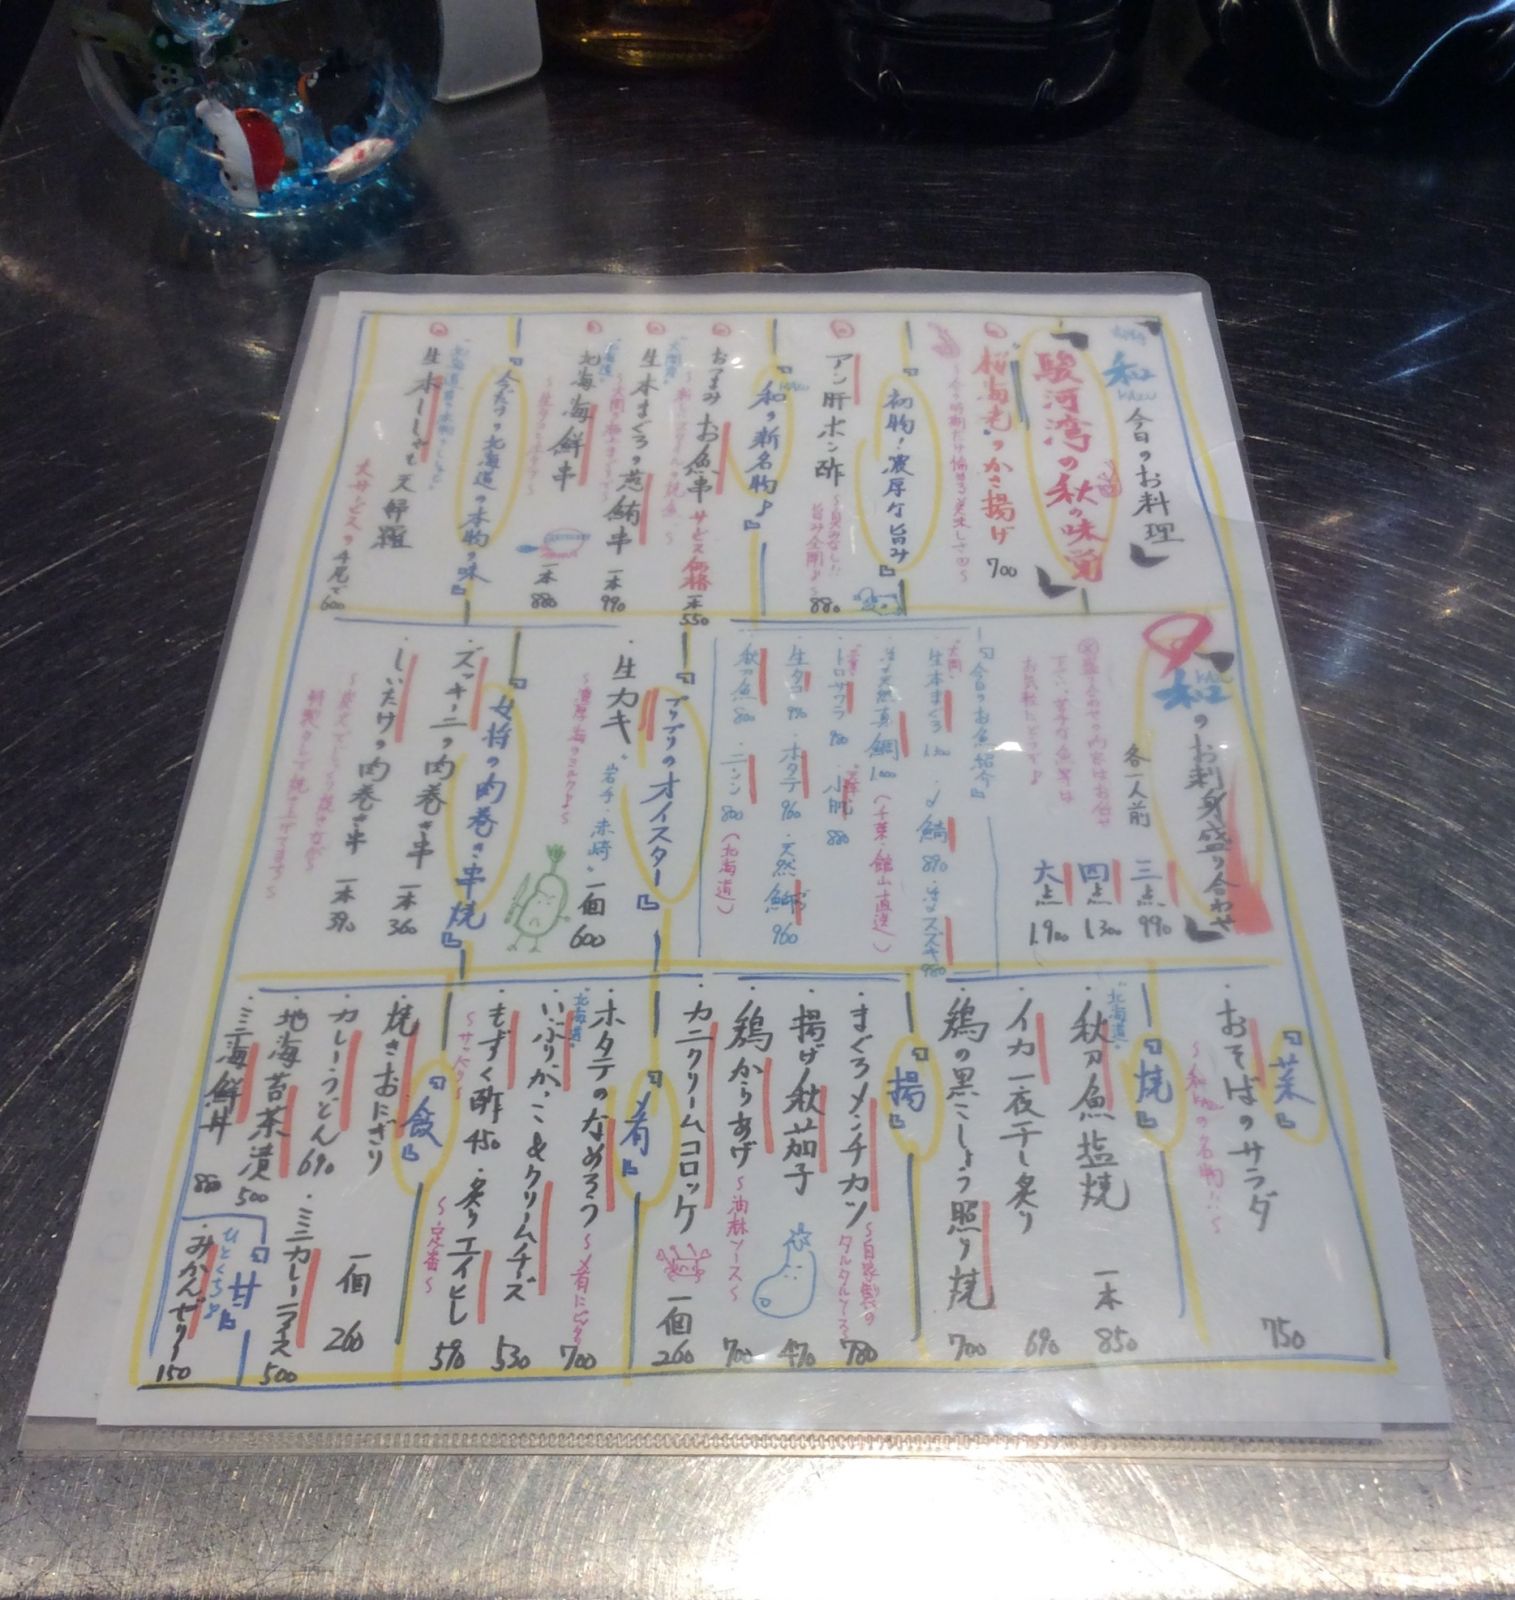 和 KAZU 今日のお料理
駿河湾の秋の味覚
桜海老のかき揚げ 700
初物!濃厚な旨み
アン肝ポン酢 880
和の新名物♪
KAZU
おつまみお魚串 サービス価格 一本 550
生本まぐろの葱鮪串 一本 990
"北海道"
北海海鮮串 一本 880
今だけの北海道の本物の味
生本ししゃも天婦羅
大サービスの4尾で 600
和 KAZU のお刺身盛り合わせ
三点 990
四点 1,300
六点 1,900
各一人前
お気軽にどうぞ♪
『今日のお魚紹介』
生本まぐろ 1,300
〆鯖 890
活〆スズキ 980
活〆天然真鯛 1,000
(千葉・館山直送)
トロサワラ 980
小肌 880
生タコ 990
ホタテ 960
天然鰤 960
秋刀魚 800
ニシン 800
(北海道)
『プリプリのオイスター』
・生カキ "岩手・赤崎" 一個 600
『女将の肉巻き串焼』
・ズッキーニの肉巻き串 一本 360
・しいたけの肉巻き串 一本 390
『菜』
・おそばのサラダ 750
~和KAZUの名物!!~
『焼』
"北海道"
・秋刀魚塩焼 一本 850
・イカ一夜干し炙り 690
・鶏の黒こしょう照り焼 700
『揚』
・まぐろメンチカツ ~自家製のタルタルソース~ 780
・揚げ秋茄子 470
・鶏からあげ ~油淋ソース~ 700
・カニクリームコロッケ 一個 260
『肴』
"北海道"
・ホタテのなめろう ~肴にピッタリ 700
・いぶりがっこ&クリームチーズ 530
・もずく酢 450
・炙りエイヒレ 590
~定番~
『飯』
・焼きおにぎり 一個 260
・カレーうどん 690
・ミニカレーライス 500
・地海苔茶漬 500
・ミニ海鮮丼 880
『甘』
ひとくち
・みかんゼリー 150